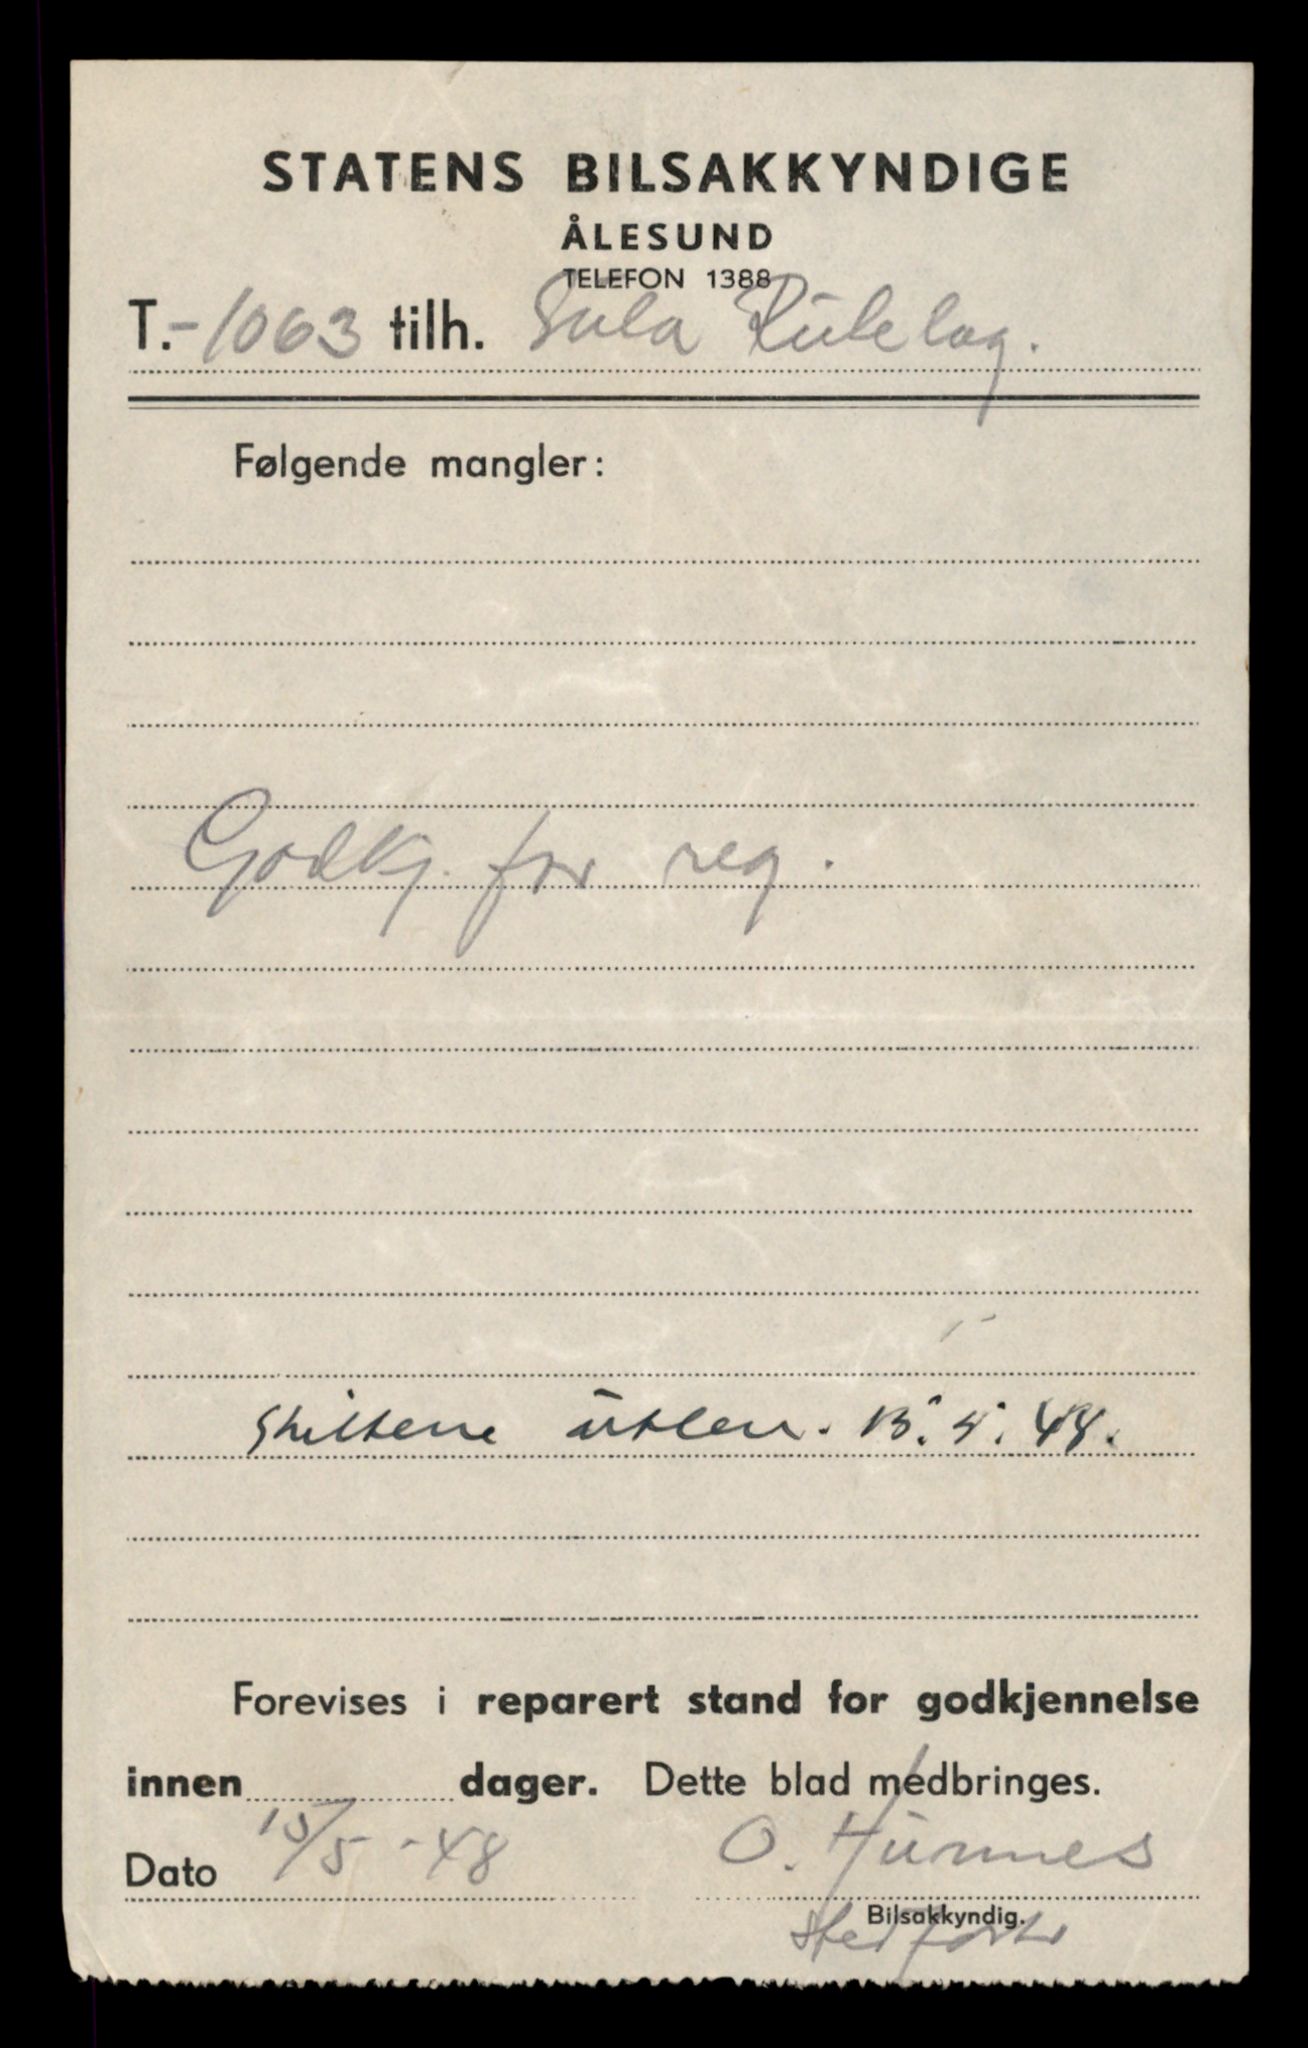 STATENS BILSAKKYNDIGE
ÅLESUND
TELEFON 1388
T.-1063 tilh. Sula Rutelag.
Følgende mangler:
Godkj. for reg.
Skiltene utlev. 15.5.48.
Forevises i reparert stand for godkjennelse
innen dager. Dette blad medbringes.
Dato 15/5-48 O. Hunnes
Bilsakkyndig.